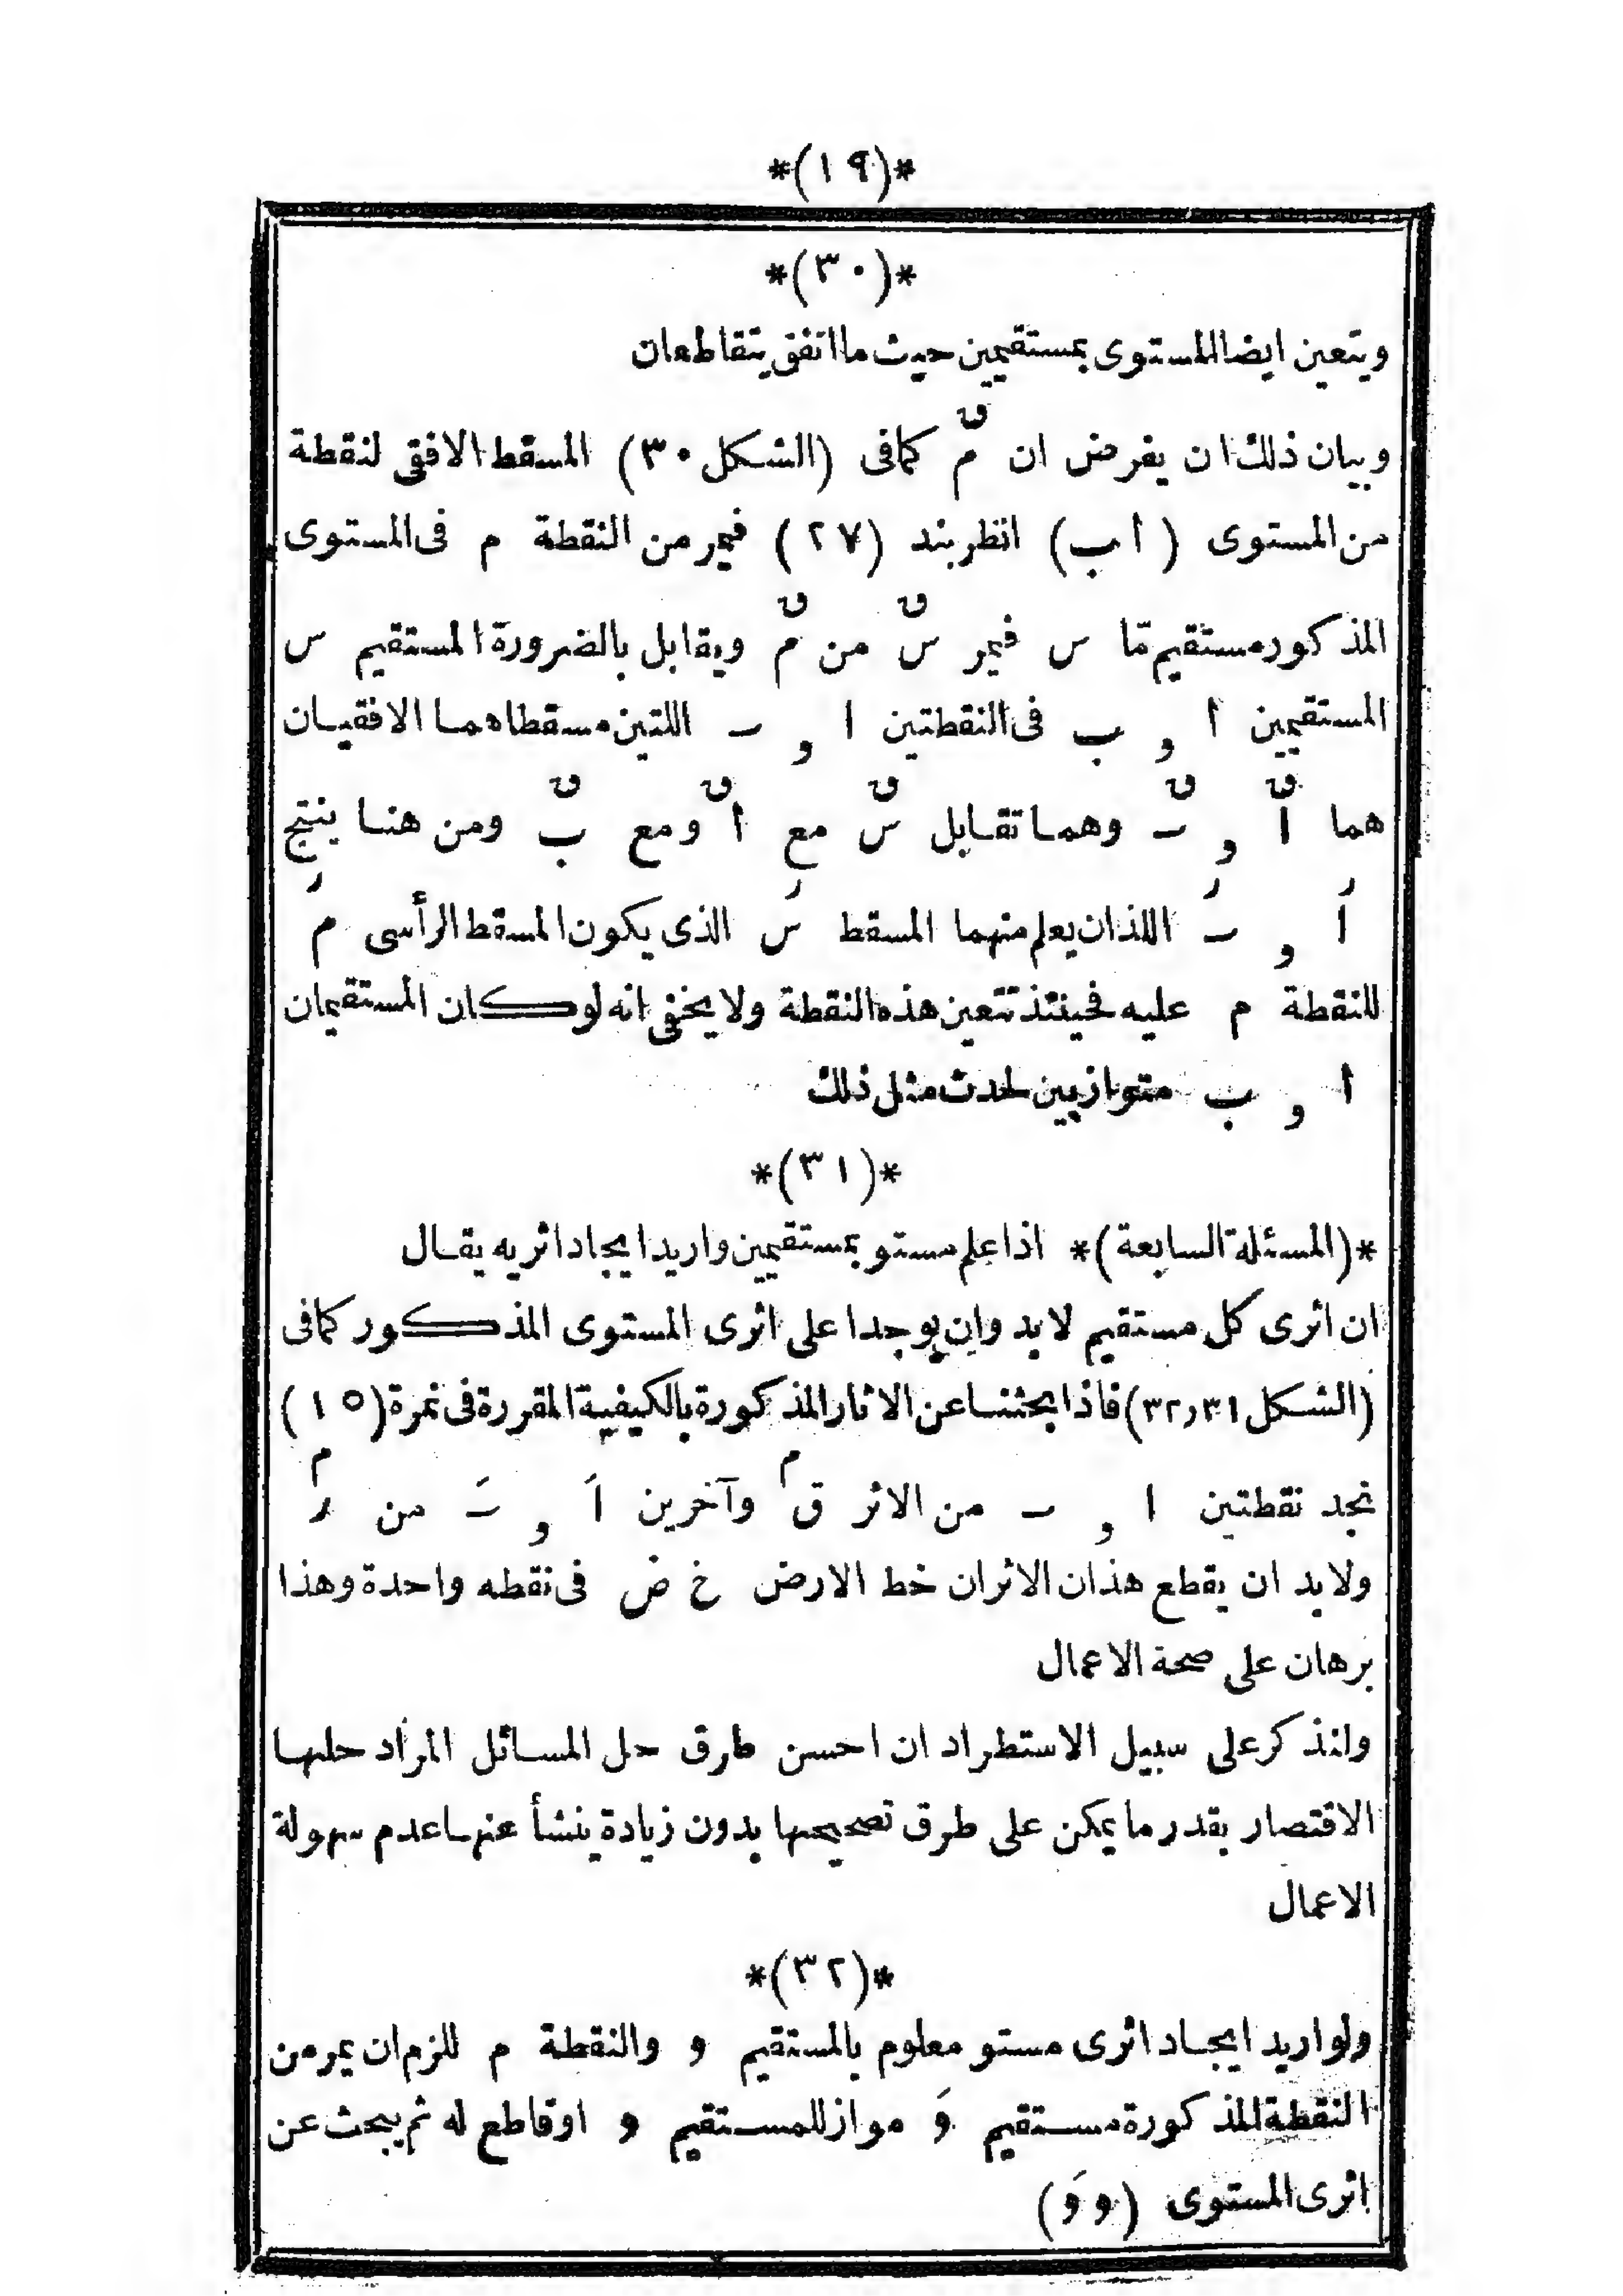 *(١٩)*
*(٣٠)*
ويتعين ايضا المستوى بمستقيمين حيث ما اتفق يتقاطعان
وبيان ذلك ان يفرض ان مَّ^ق كما فى (الشكل ٣٠) المسقط الافقى لنقطة
من المستوى (أب) انظر بند (٢٧) فيمر من النقطة م فى المستوى
المذكور مستقيم مّا س فيمر س^ق من م^ق ويقابل بالضرورة المستقيم س
المستقيمين أ و ب فى النقطتين ا و ـ اللتين مسقطاهما الافقيان
هما ا^ق و ـ^ق وهما تقابل س^ق مع أ^ق ومع ب^ق ومن هنا ينتج
اَ^ر و ـَ^ر اللذان يعلم منهما المسقط سَ^ر الذى يكون المسقط الرأسى مَ^ر
للنقطة م عليه فحينئذ تتعين هذه النقطة ولا يخفى انه لو كان المستقيمان
أ و ب متوازيين لحدث مثل ذلك
*(٣١)*
*(المسئلة السابعة)* اذا علم مستو بمستقيمين واريد ايجاد اثريه يقال
ان اثرى كل مستقيم لابد وان يوجدا على اثرى المستوى المذكور كما فى
(الشكل ٣١ و٣٢) فاذا بحثنا عن الاثار المذكورة بالكيفية المقررة فى نمرة (١٥)
نجد نقطتين ا و ـ من الاثر ق^م وآخرين اَ و ـَ من ر^م
ولابد ان يقطع هذان الاثران خط الارض خ ض فى نقطه واحدة وهذا
برهان على صحة الاعمال
ولنذكر على سبيل الاستطراد ان احسن طرق حل المسائل المراد حلها
الاقتصار بقدر ما يمكن على طرق تصحيحها بدون زيادة ينشأ عنها عدم سهولة
الاعمال
*(٣٢)*
ولو اريد ايجاد اثرى مستو معلوم بالمستقيم و والنقطة م للزم ان يمر من
النقطة المذكورة مستقيم وَ مواز للمستقيم و او قاطع له ثم يبحث عن
اثرى المستوى (و وَ)